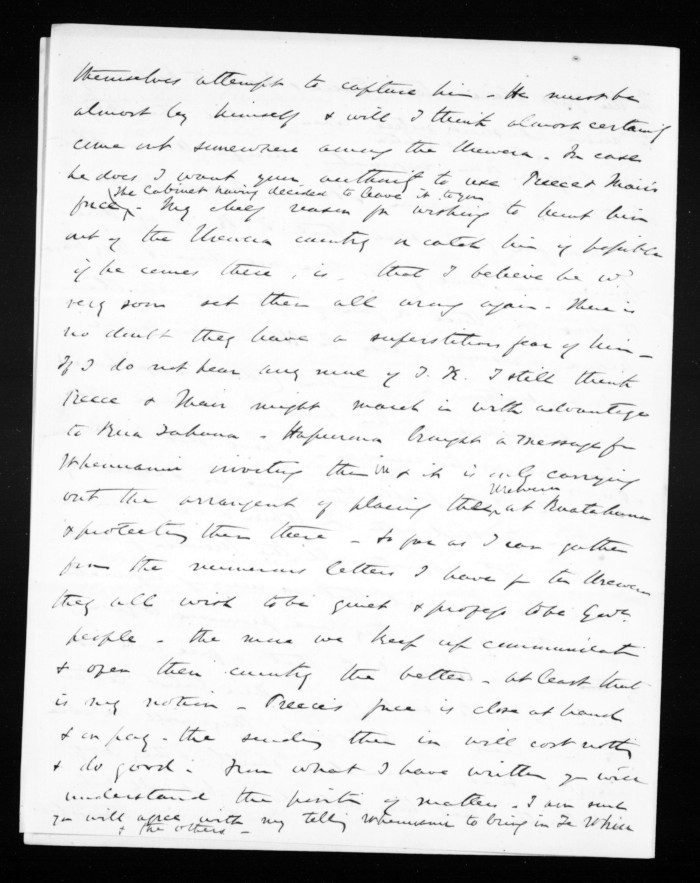 themselves attempt to capture him - He must be
almost by himself & will I think almost certainly
come out somewhere among the Urewera - In case
he does I want your authority to use Preece & Mair's
The Cabinet having decided to leave it to you
force - My chief reason for wishing to hunt him
out of the Urewera country or catch him if possible
if he comes there, is, that I believe he wd
very soon set them all wrong again - There is
no doubt they have a superstitious fear of him -
If I do not hear any more of T. K. I still think
Preece & Mair might march in with advantage
to - Hapurona brought a message from
Whenuanui inviting them in & it is only carrying
Urewera
out the arrangent of placing the at Ruatahuna
& protecting them there - So far as I can gather
from the numerous letters I have fr the Urewera
they all wish to be quiet & profess to be Govt
people - the more we keep up communicati
& open their country the better - at least that
is my notion - Preece's force is close at hand
& on pay - the sending them in will cost nothg
& do good - From what I have written you will
understand the position of matters - I am sure
you will agree with my tellg Whenuanui to bring in Te Whiu
& the others -